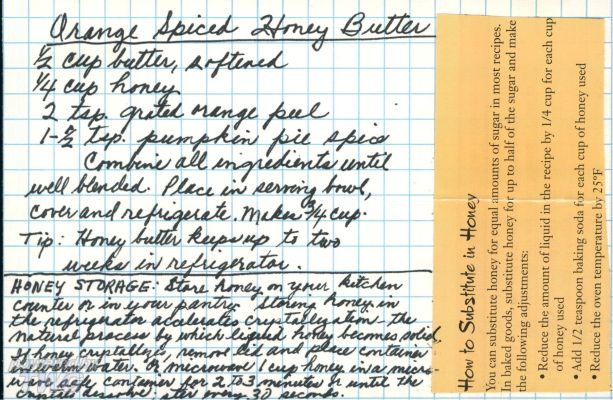 Orange Spiced Honey Butter
½ cup butter, softened
¼ cup honey
2 tsp. grated orange peel
1-½ tsp. pumpkin pie spice
Combine all ingredients until
well blended. Place in serving bowl,
cover and refrigerate. Makes ¾ cup.
Tip: Honey butter keeps up to two
weeks in refrigerator.
HONEY STORAGE: Store honey on your kitchen
counter or in your pantry. Storing honey in
the refrigerator accelerates crystallization the
natural process by which liquid honey becomes solid.
If honey crystallizes, remove lid and place container
in warm water. Or microwave 1 cup honey in a micro-
wave safe container for 2 to 3 minutes or until the
crystals dissolve, ster every 30 seconds.
How to Substitute in Honey
You can substitute honey for equal amounts of sugar in most recipes.
In baked goods, substitute honey for up to half of the sugar and make
the following adjustments:
• Reduce the amount of liquid in the recipe by 1/4 cup for each cup
of honey used
• Add 1/2 teaspoon baking soda for each cup of honey used
• Reduce the oven temperature by 25°F